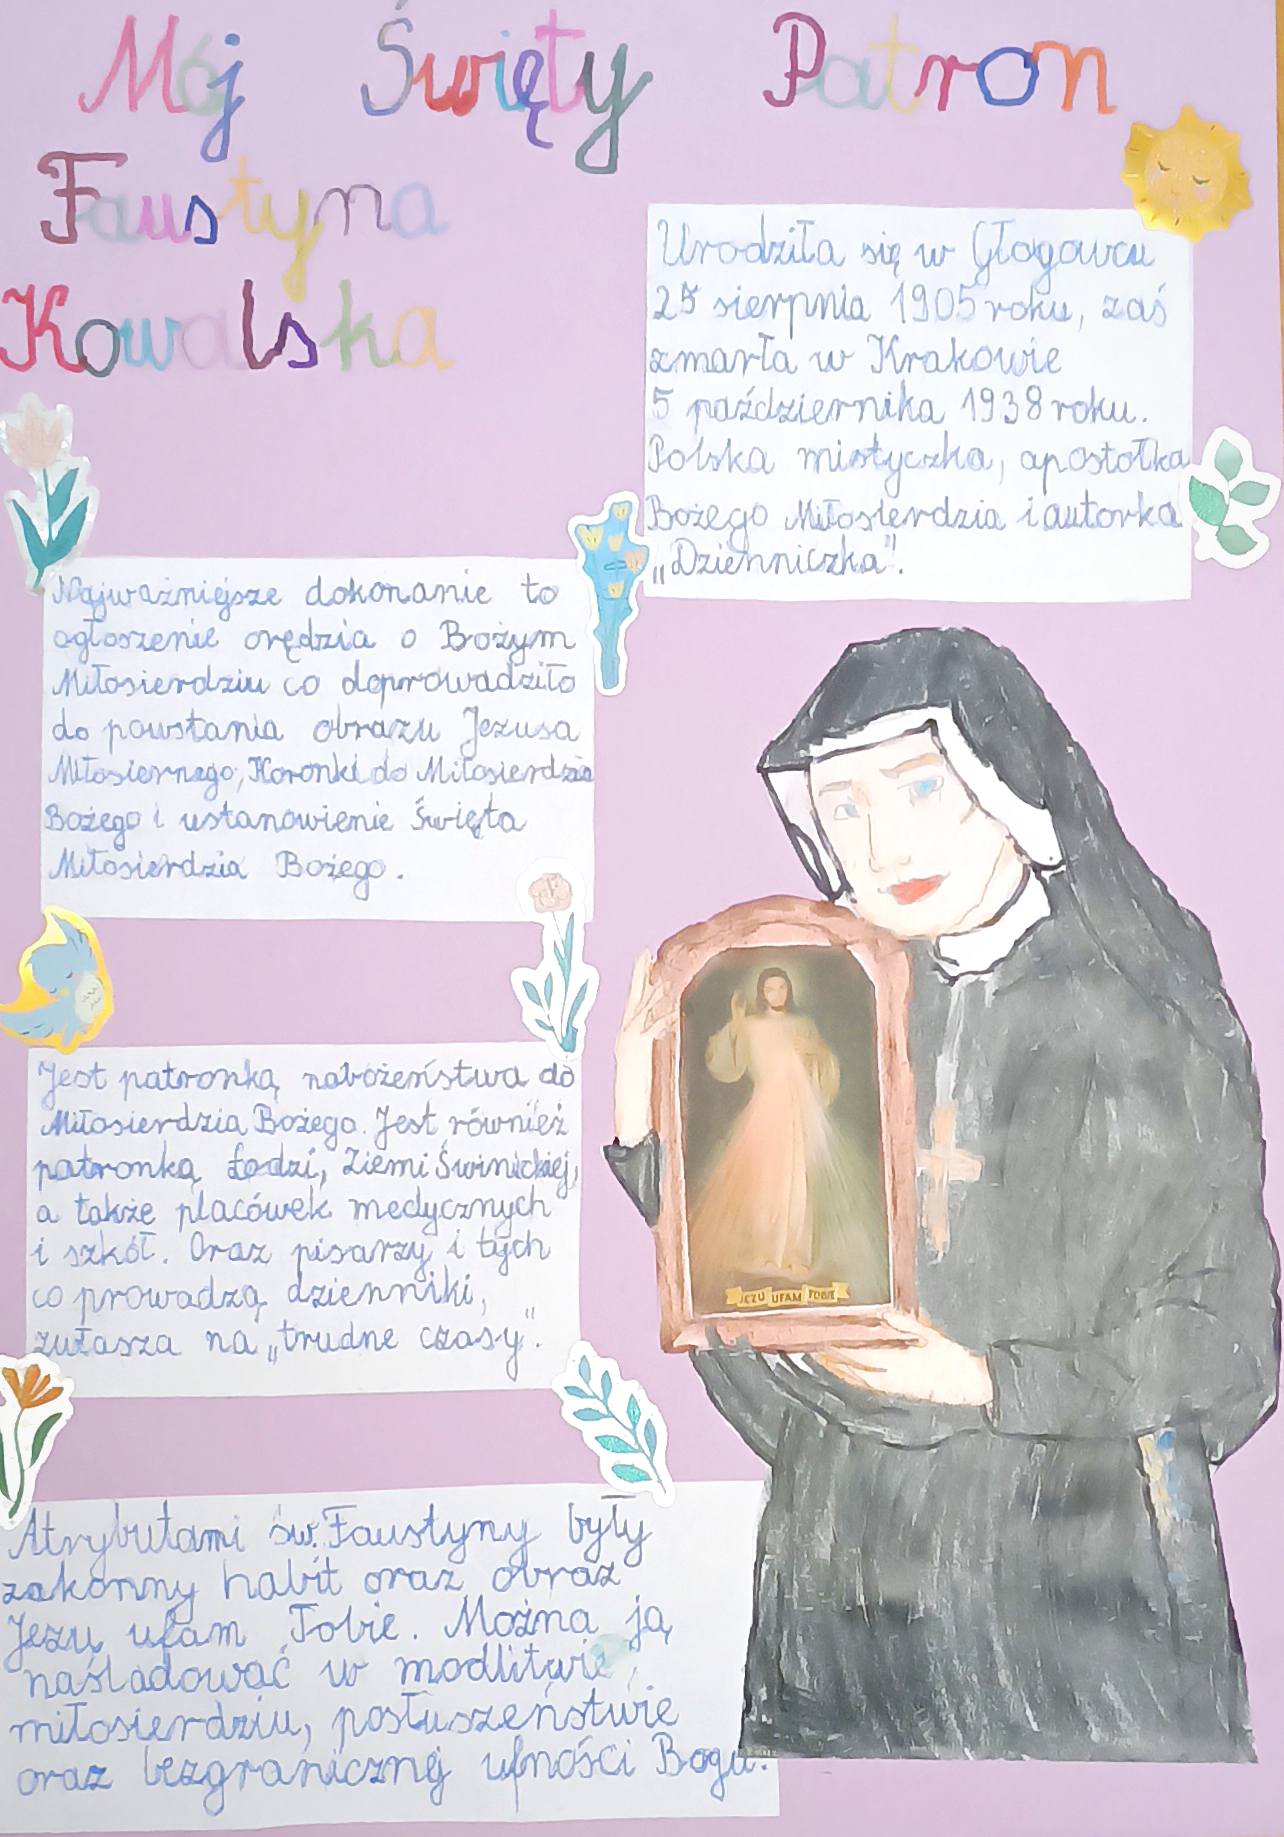 Mój Święty Patron
Faustyna
Kowalska
Urodziła się w Głogowcu
25 sierpnia 1905 roku, zaś
zmarła w Krakowie
5 października 1938 roku.
Polska mistyczka, apostołka
Bożego Miłosierdzia i autorka
„Dzienniczka".
Najważniejsze dokonanie to
ogłoszenie orędzia o Bożym
Miłosierdziu co doprowadziło
do powstania obrazu Jezusa
Miłosiernego, Koronki do Miłosierdzia
Bożego i ustanowienie Święta
Miłosierdzia Bożego.
Jest patronką nabożeństwa do
Miłosierdzia Bożego. Jest również
patronką Łodzi, Ziemi Świnickiej,
a także placówek medycznych
i szkół. Oraz pisarzy i tych
co prowadzą dzienniki,
zułasza na „trudne czasy".
JEZU UFAM TOBIE
Atrybutami św. Faustyny były
zakonny habit oraz obraz
Jezu ufam Tobie. Można ją
naśladować w modlitwie,
miłosierdziu, posłuszeństwie
oraz bezgranicznej ufności Bogu.